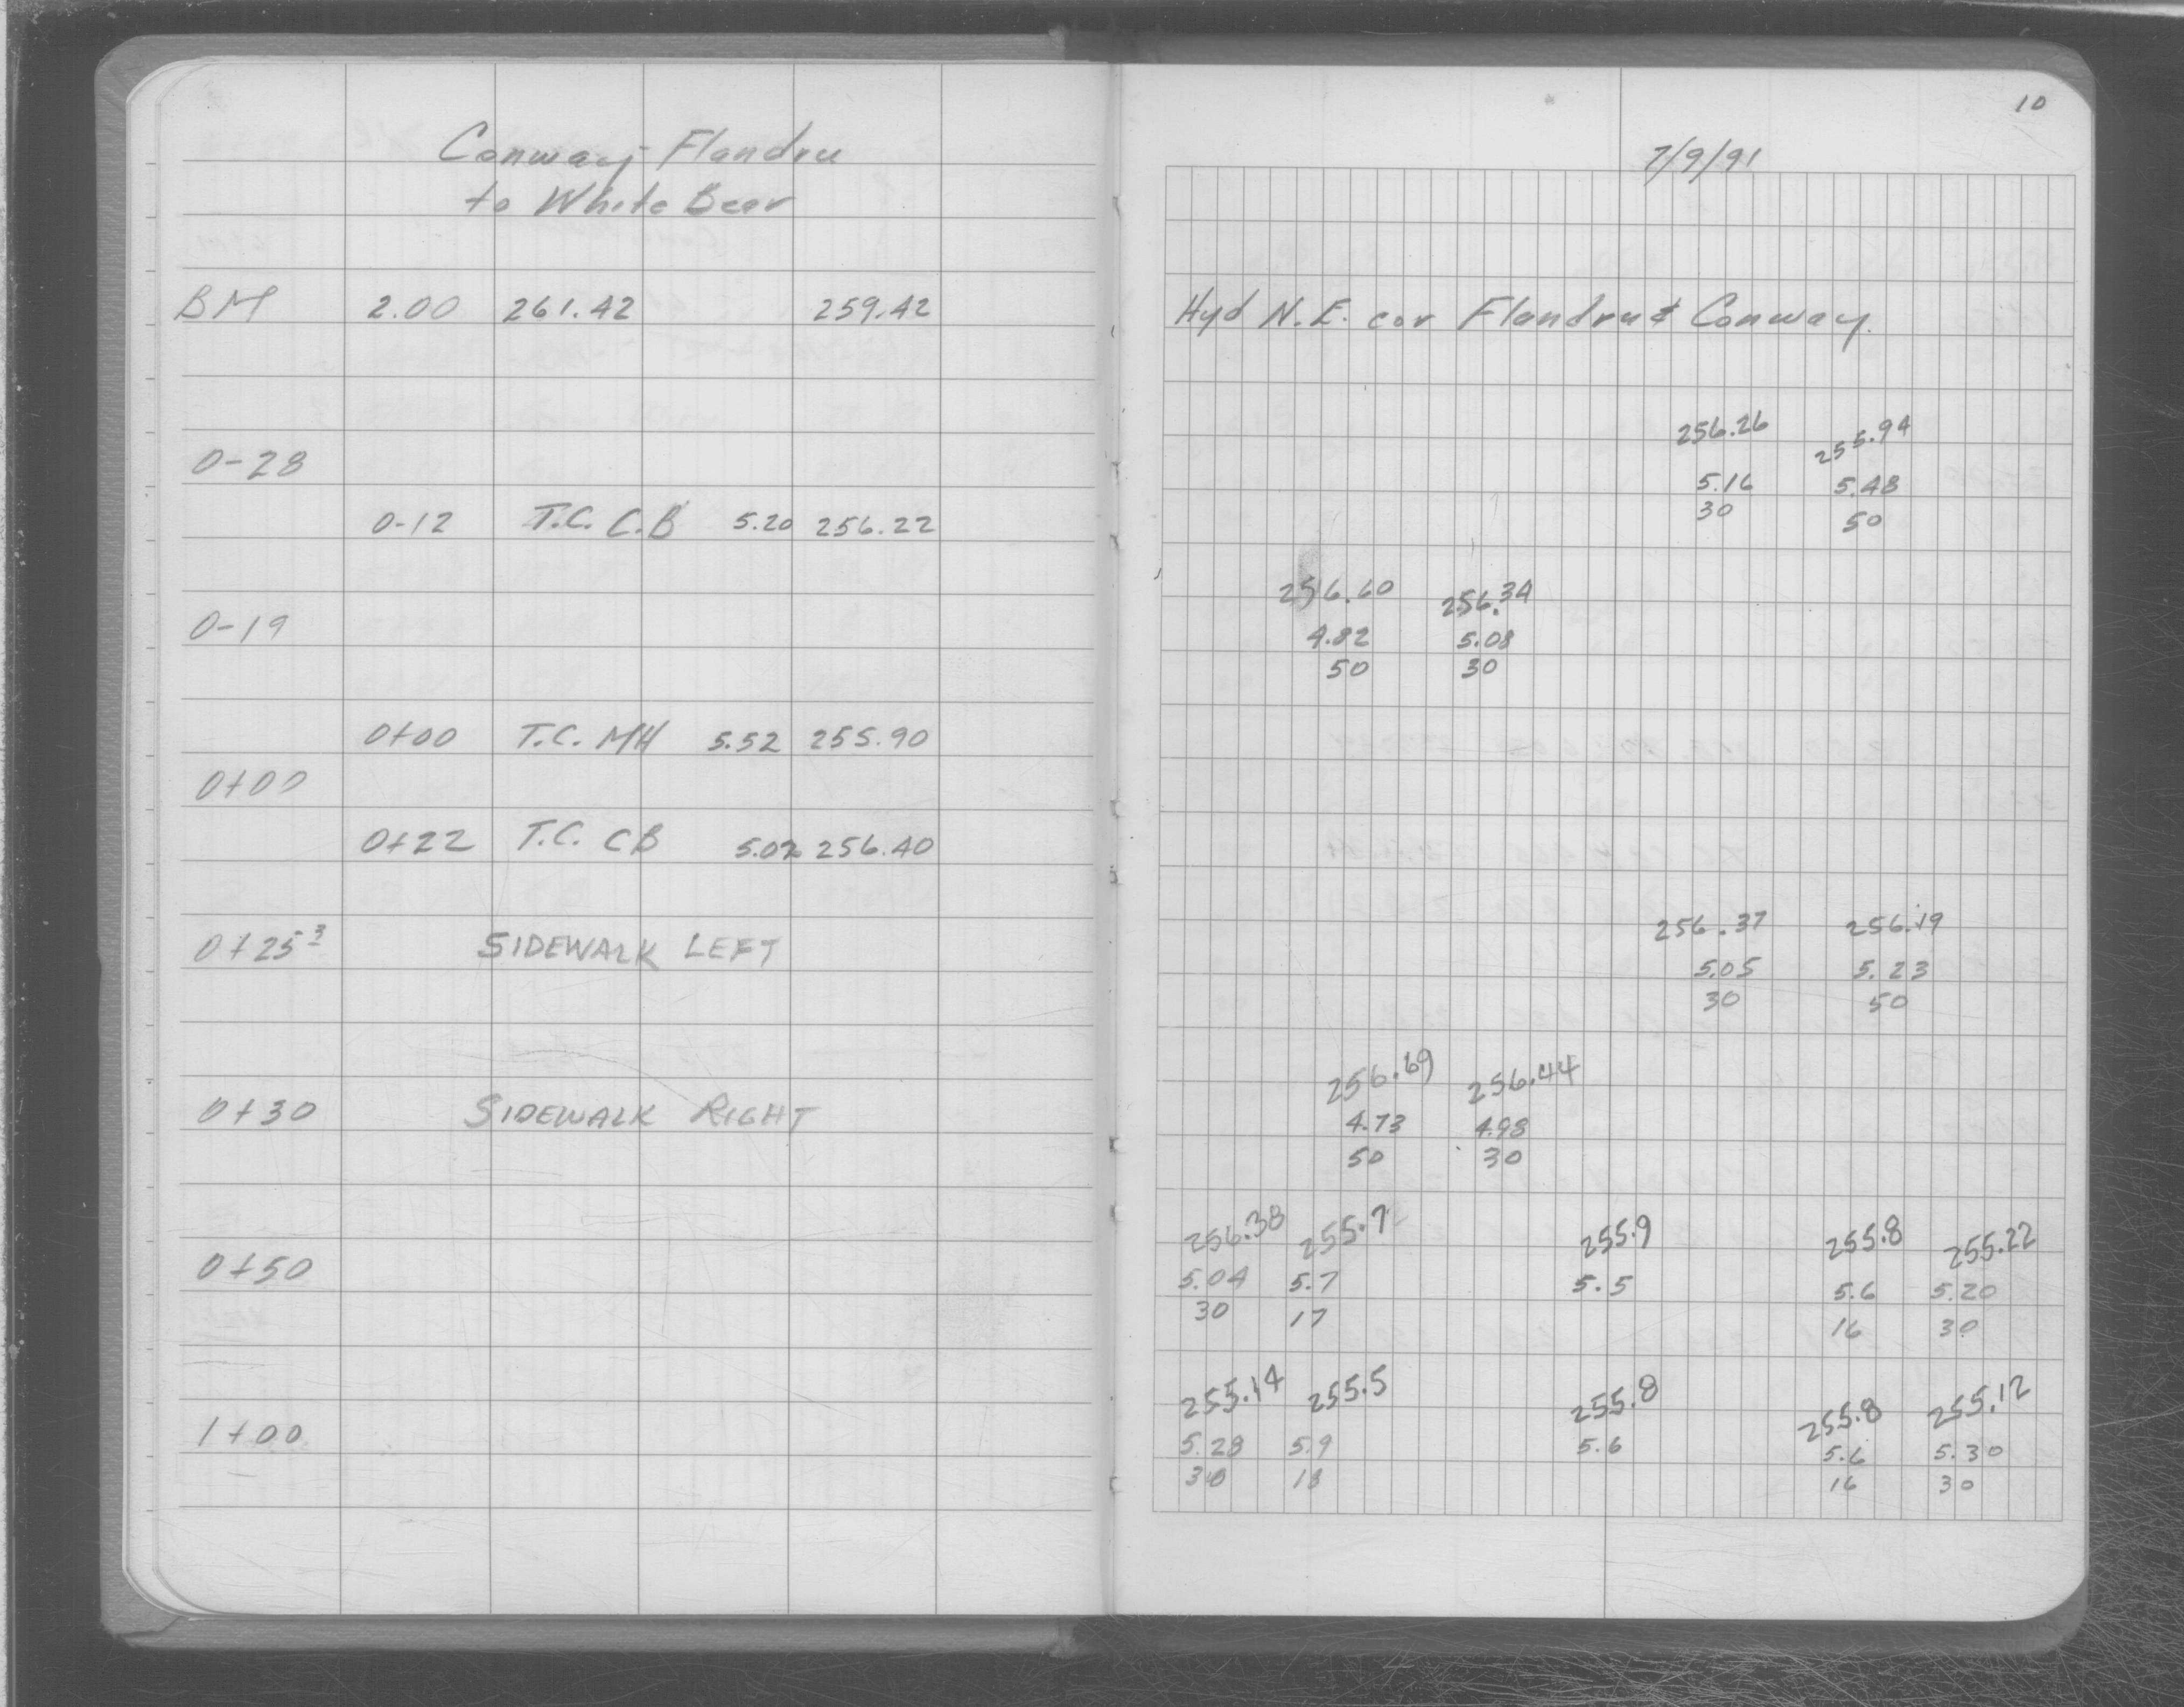 Conway - Flandru
to White Bear
BM 2.00 261.42 259.42
0-28
0-12 T.C. C.B 5.20 256.22
0-19
0+00 T.C. MH 5.52 255.90
0+00
0+22 T.C. CB 5.02 256.40
0+25³ SIDEWALK LEFT
0+30 SIDEWALK RIGHT
0+50
1+00
10
7/9/91
Hyd N.E. cor Flandru & Conway.
256.26 255.94
5.16 5.48
30 50
256.60 256.34
4.82 5.08
50 30
256.37 256.19
5.05 5.23
30 50
256.69 256.44
4.73 4.98
50 30
256.38 255.7 255.9 255.8 255.22
5.04 5.7 5.5 5.6 5.20
30 17 16 30
255.14 255.5 255.8 255.8 255.12
5.28 5.9 5.6 5.6 5.30
30 18 16 30